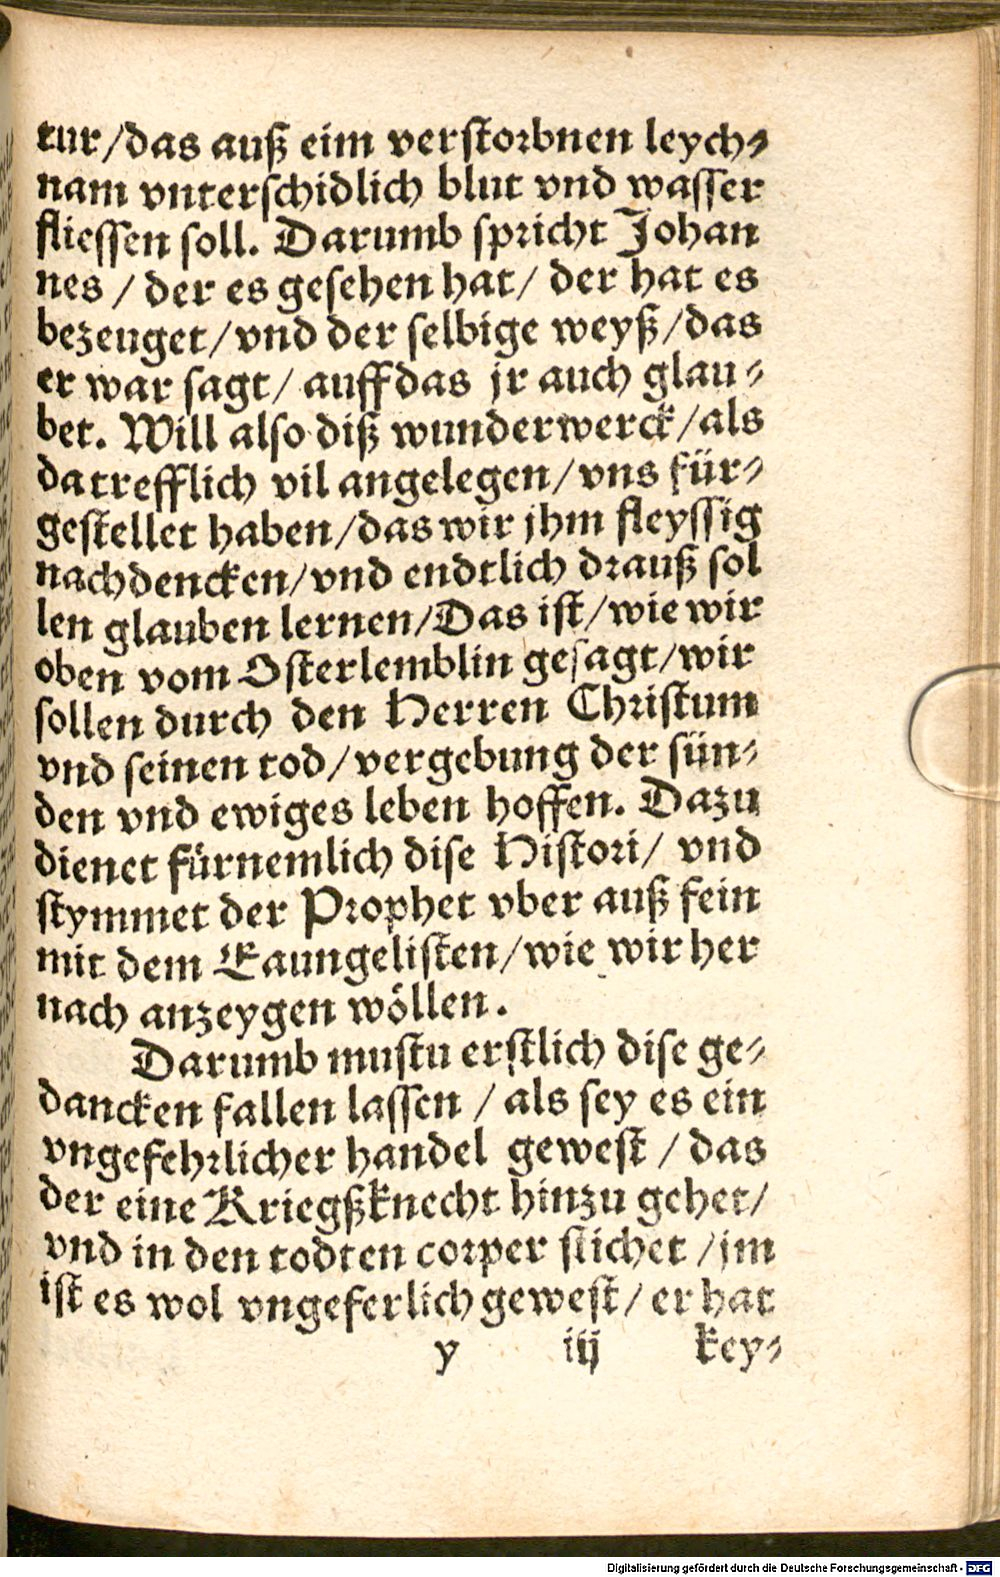 tur/das auß eim verstorbnen leych-
nam vnterschidlich blut vnd wasser
fliessen soll. Darumb spricht Johan
nes / der es gesehen hat/ der hat es
bezeuget/vnd der selbige weyß/das
er war sagt/ auff das jr auch glau-
bet. Will also diß wunderwerck/als
da trefflich vil angelegen/vns für-
gestellet haben/das wir jhm fleyssig
nachdencken/vnd endtlich drauß sol
len glauben lernen/Das ist/wie wir
oben vom Osterlemblin gesagt/wir
sollen durch den Herren Christum
vnd seinen tod/vergebung der sün-
den vnd ewiges leben hoffen. Dazu
dienet fürnemlich dise Histori/ vnd
stymmet der Prophet vber auß fein
mit dem Eaungelisten/wie wir her
nach anzeygen wöllen.
Darumb mustu erstlich dise ge-
dancken fallen lassen / als sey es ein
vngefehrlicher handel gewest / das
der eine Kriegßknecht hinzu gehet/
vnd in den todten corper stichet /jm
ist es wol vngeferlich gewest/ er hat
y iij key-
Digitalisierung gefördert durch die Deutsche Forschungsgemeinschaft - DFG